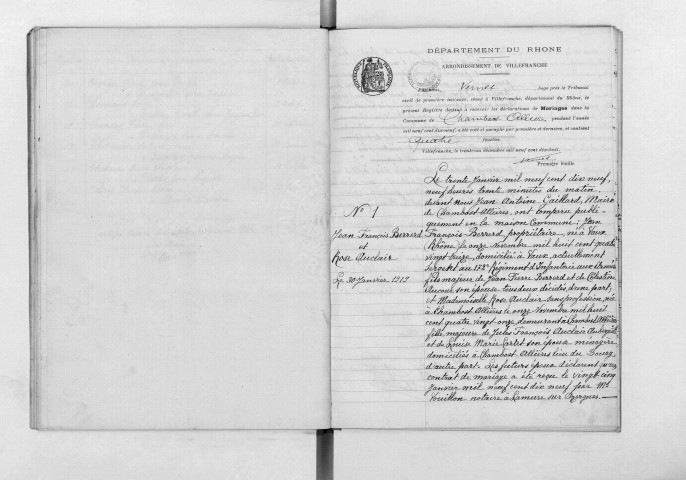 DÉPARTEMENT DU RHONE
ARRONDISSEMENT DE VILLEFRANCHE
Juge près le Tribunal
civil de première instance, séant à Villefranche, département du Rhône, le
présent Registre destiné à recevoir les déclarations de Mariages dans la
Commune de Chambost Allières pendant l'année
mil neuf cent dix-neuf, a été coté et paraphé par première et dernière, et contient
quatre feuilles.
Villefranche, le trente-un décembre mil neuf cent dix-huit.
Première Feuille
N° 1
Jean François Berrerd
et
Rose Auclair
Le 30 Janvier 1919
Le trente Janvier mil neuf cent dix neuf,
neuf heures trente minutes du matin,
devant Nous Jean Antoine Gaillard, Maire
de Chambost-Allières, ont comparu publi-
quement en la maison Commune : Jean
François Berrerd propriétaire, né à Vaux
Rhône le onze novembre mil huit cent quatre
vingt treize, domicilié à Vaux, actuellement
sergent au 172e Régiment d'Infanterie aux Armées
fils majeur de Jean Pierre Berrerd et de Célestine
Aucour son épouse tous deux décédés, d'une part,
et Mademoiselle Rose Auclair sans profession, née
à Chambost Allières le onze Novembre mil huit
cent quatre vingt-onze demeurant à Chambost-Allières
fille majeure de Jules François Auclair Aubergiste
et de Louise Marie Sartet son épouse ménagère
domiciliés à Chambost Allières lieu du Bourg,
d'autre part. Les futurs époux déclarent qu'un
contrat de mariage a été reçu le vingt cinq
Janvier mil neuf cent dix neuf par Me
notaire à Lamure sur Azergues.